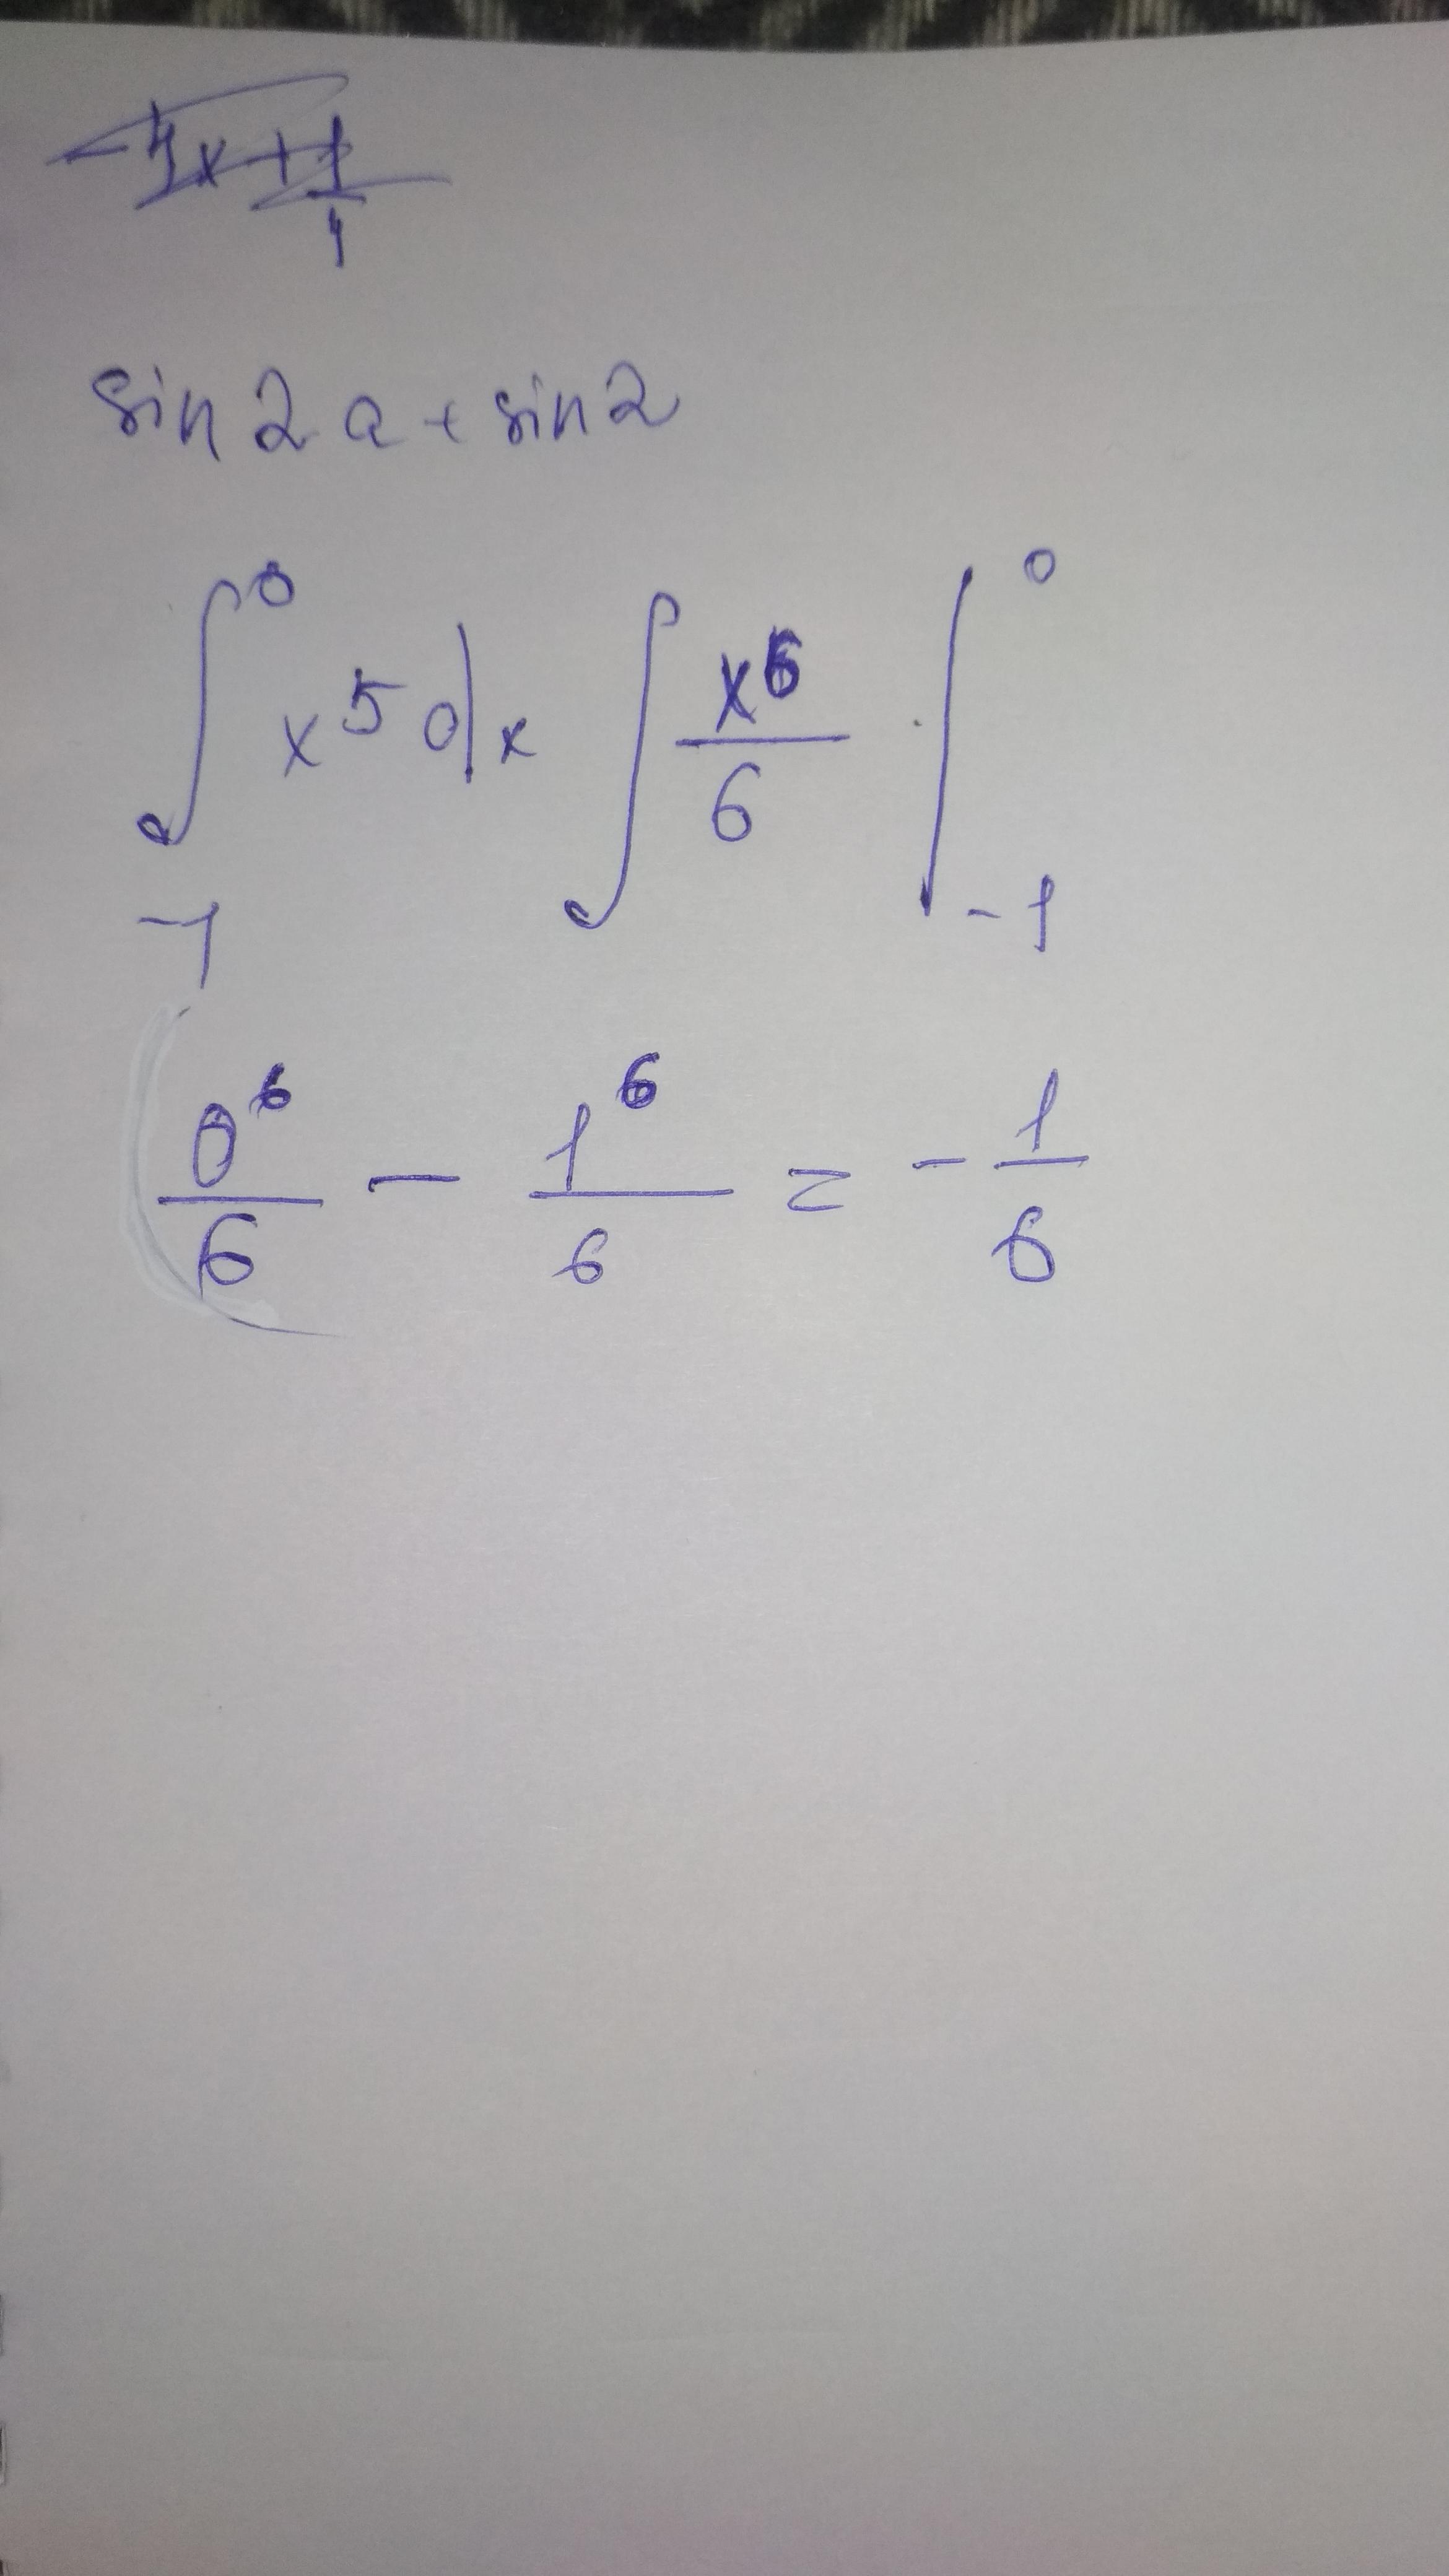 -4x+1/4
sin 2a + sin 2
∫₋₁⁰ x⁵ dx ∫ x⁶/6 |₋₁⁰
0⁶/6 - 1⁶/6 = -1/6